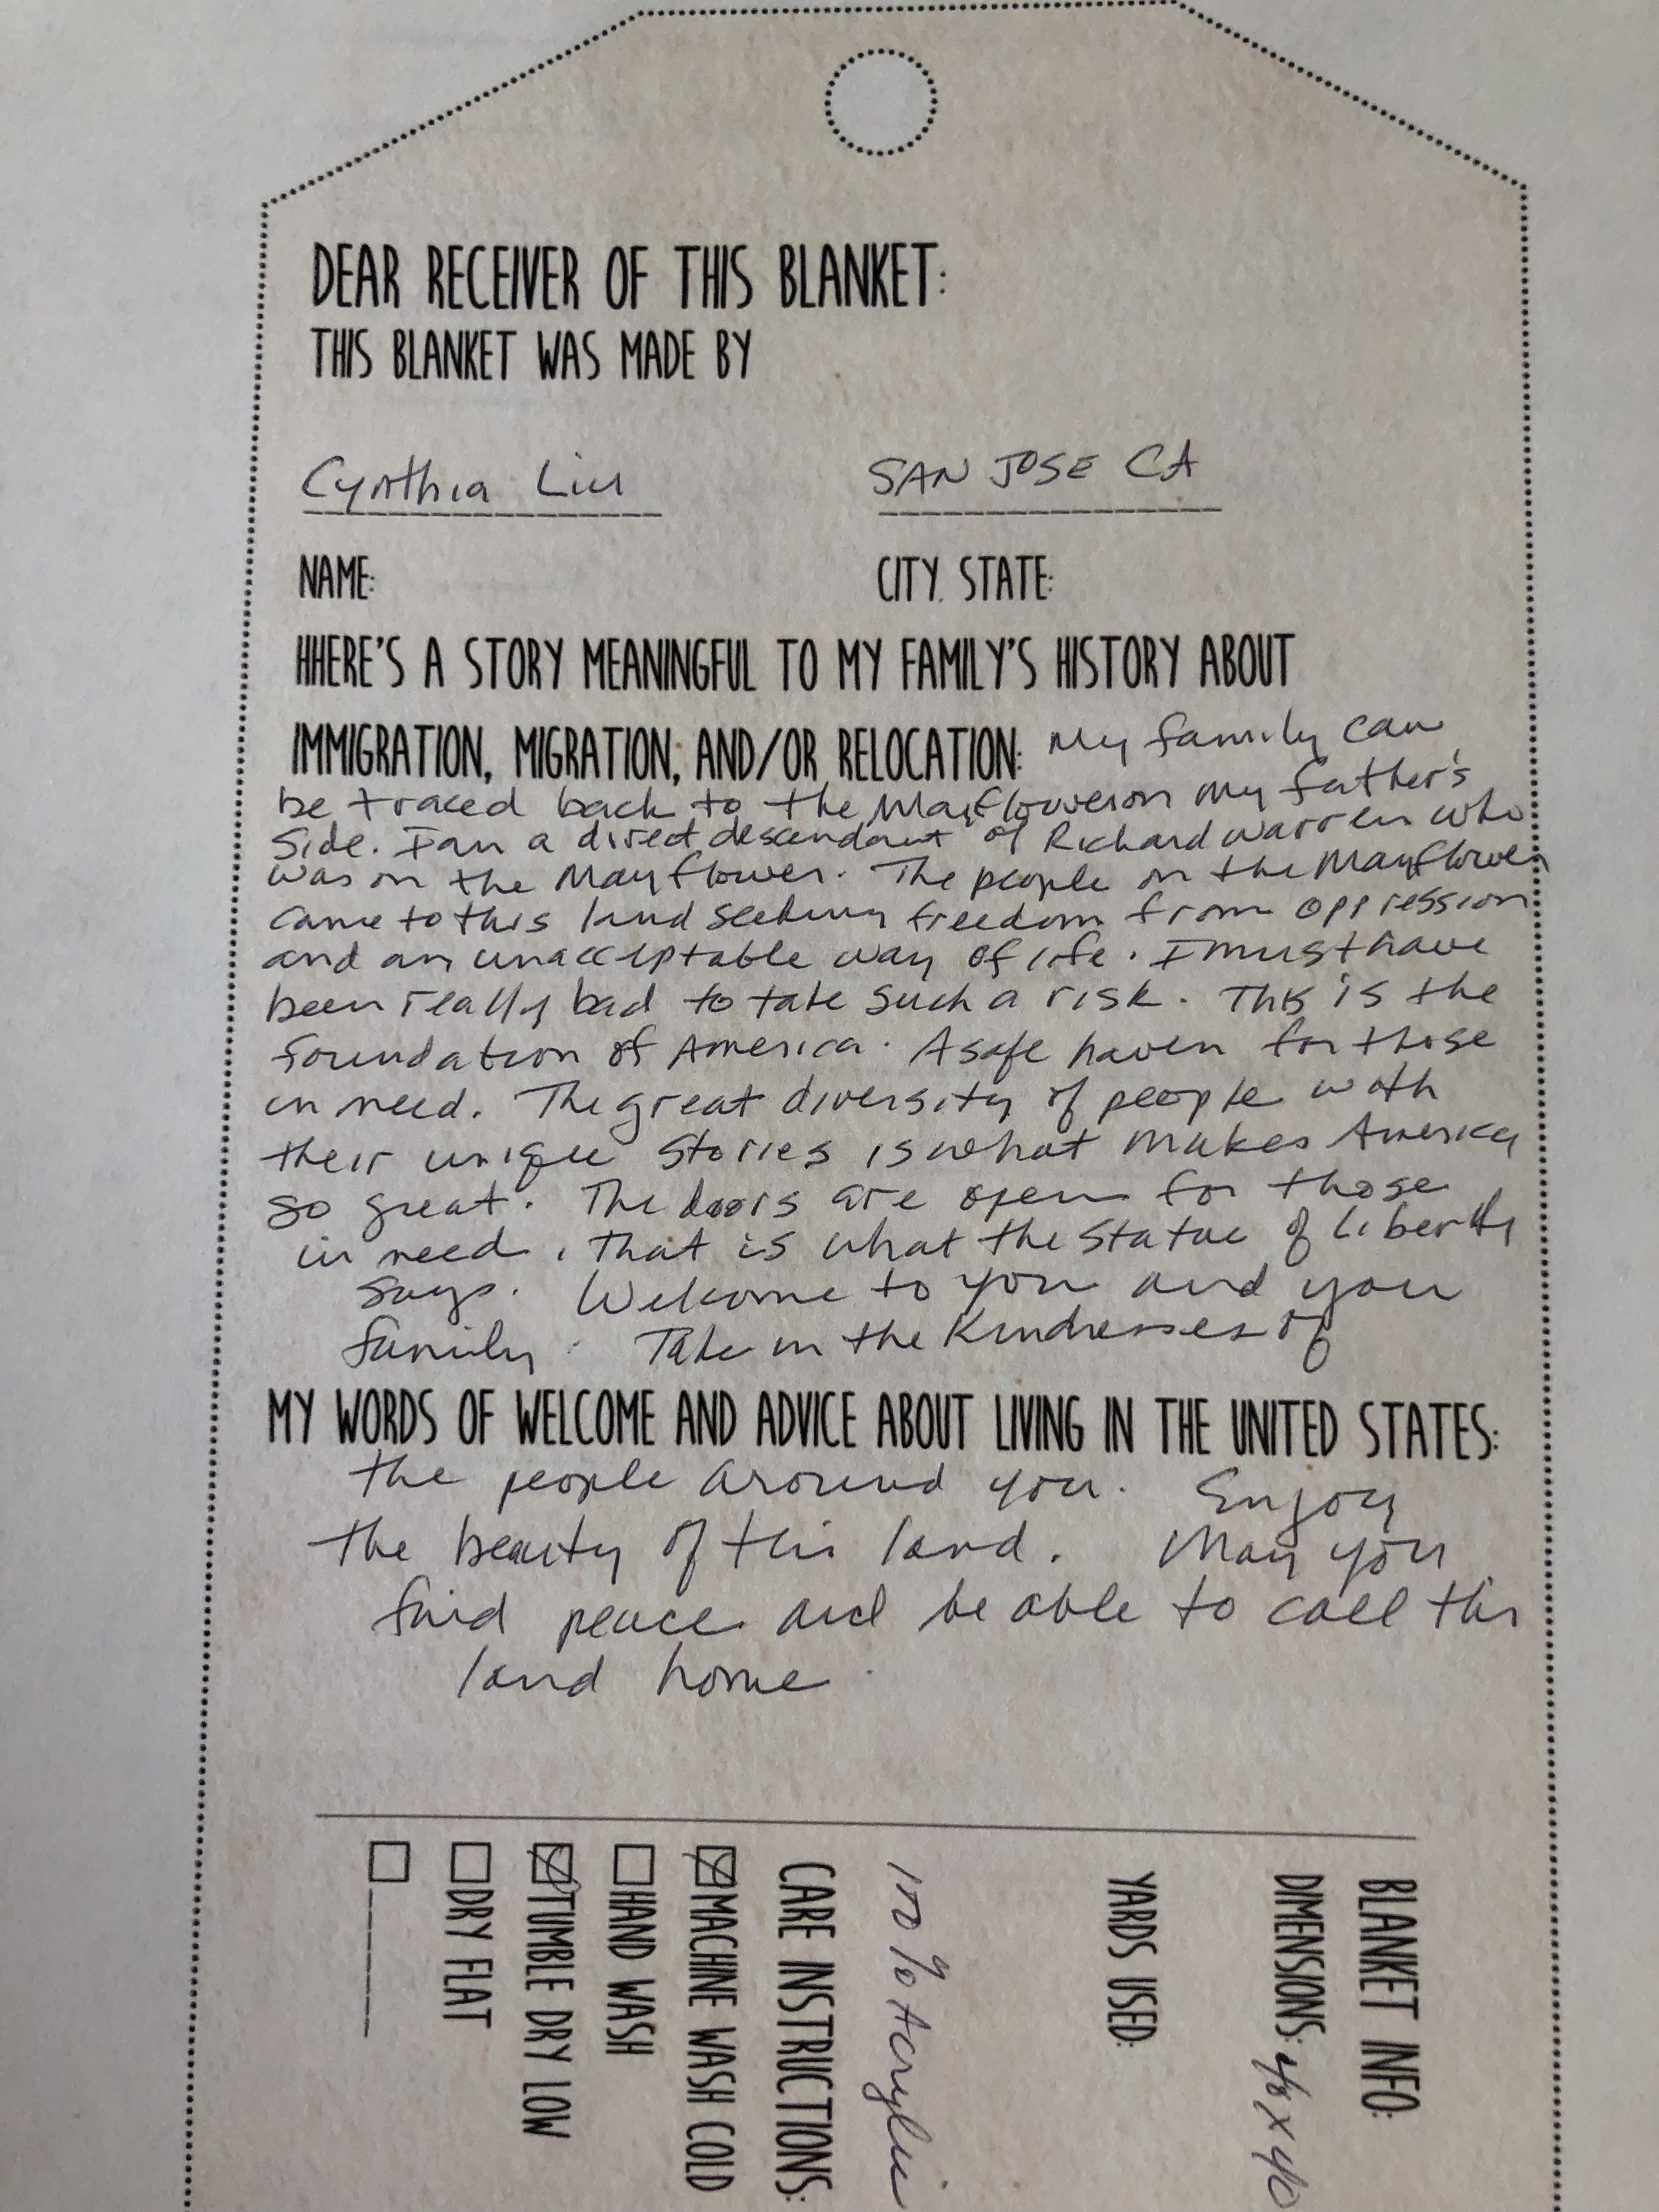 DEAR RECEIVER OF THIS BLANKET:
THIS BLANKET WAS MADE BY
Cynthia Liu SAN JOSE CA
NAME: CITY, STATE:
HHERE'S A STORY MEANINGFUL TO MY FAMILY'S HISTORY ABOUT
IMMIGRATION, MIGRATION, AND/OR RELOCATION: My family can
be traced back to the Mayflower on my father's
side. I am a direct descendant of Richard Warren who
was on the Mayflower. The people on the Mayflower
came to this land seeking freedom from oppression
and an unacceptable way of life. I must have
been really bad to take such a risk. This is the
foundation of America. A safe haven for those
in need. The great diversity of people with
their unique stories is what makes America
so great. The doors are open for those
in need, that is what the Statue of Liberty
says. Welcome to you and you
family. Take in the kindnesses of
MY WORDS OF WELCOME AND ADVICE ABOUT LIVING IN THE UNITED STATES:
the people around you. Enjoy
the beauty of this land. May you
find peace and be able to call this
land home.
BLANKET INFO:
DIMENSIONS: 40 x 40
YARDS USED:
100% Acrylic
CARE INSTRUCTIONS:
MACHINE WASH COLD
HAND WASH
TUMBLE DRY LOW
DRY FLAT